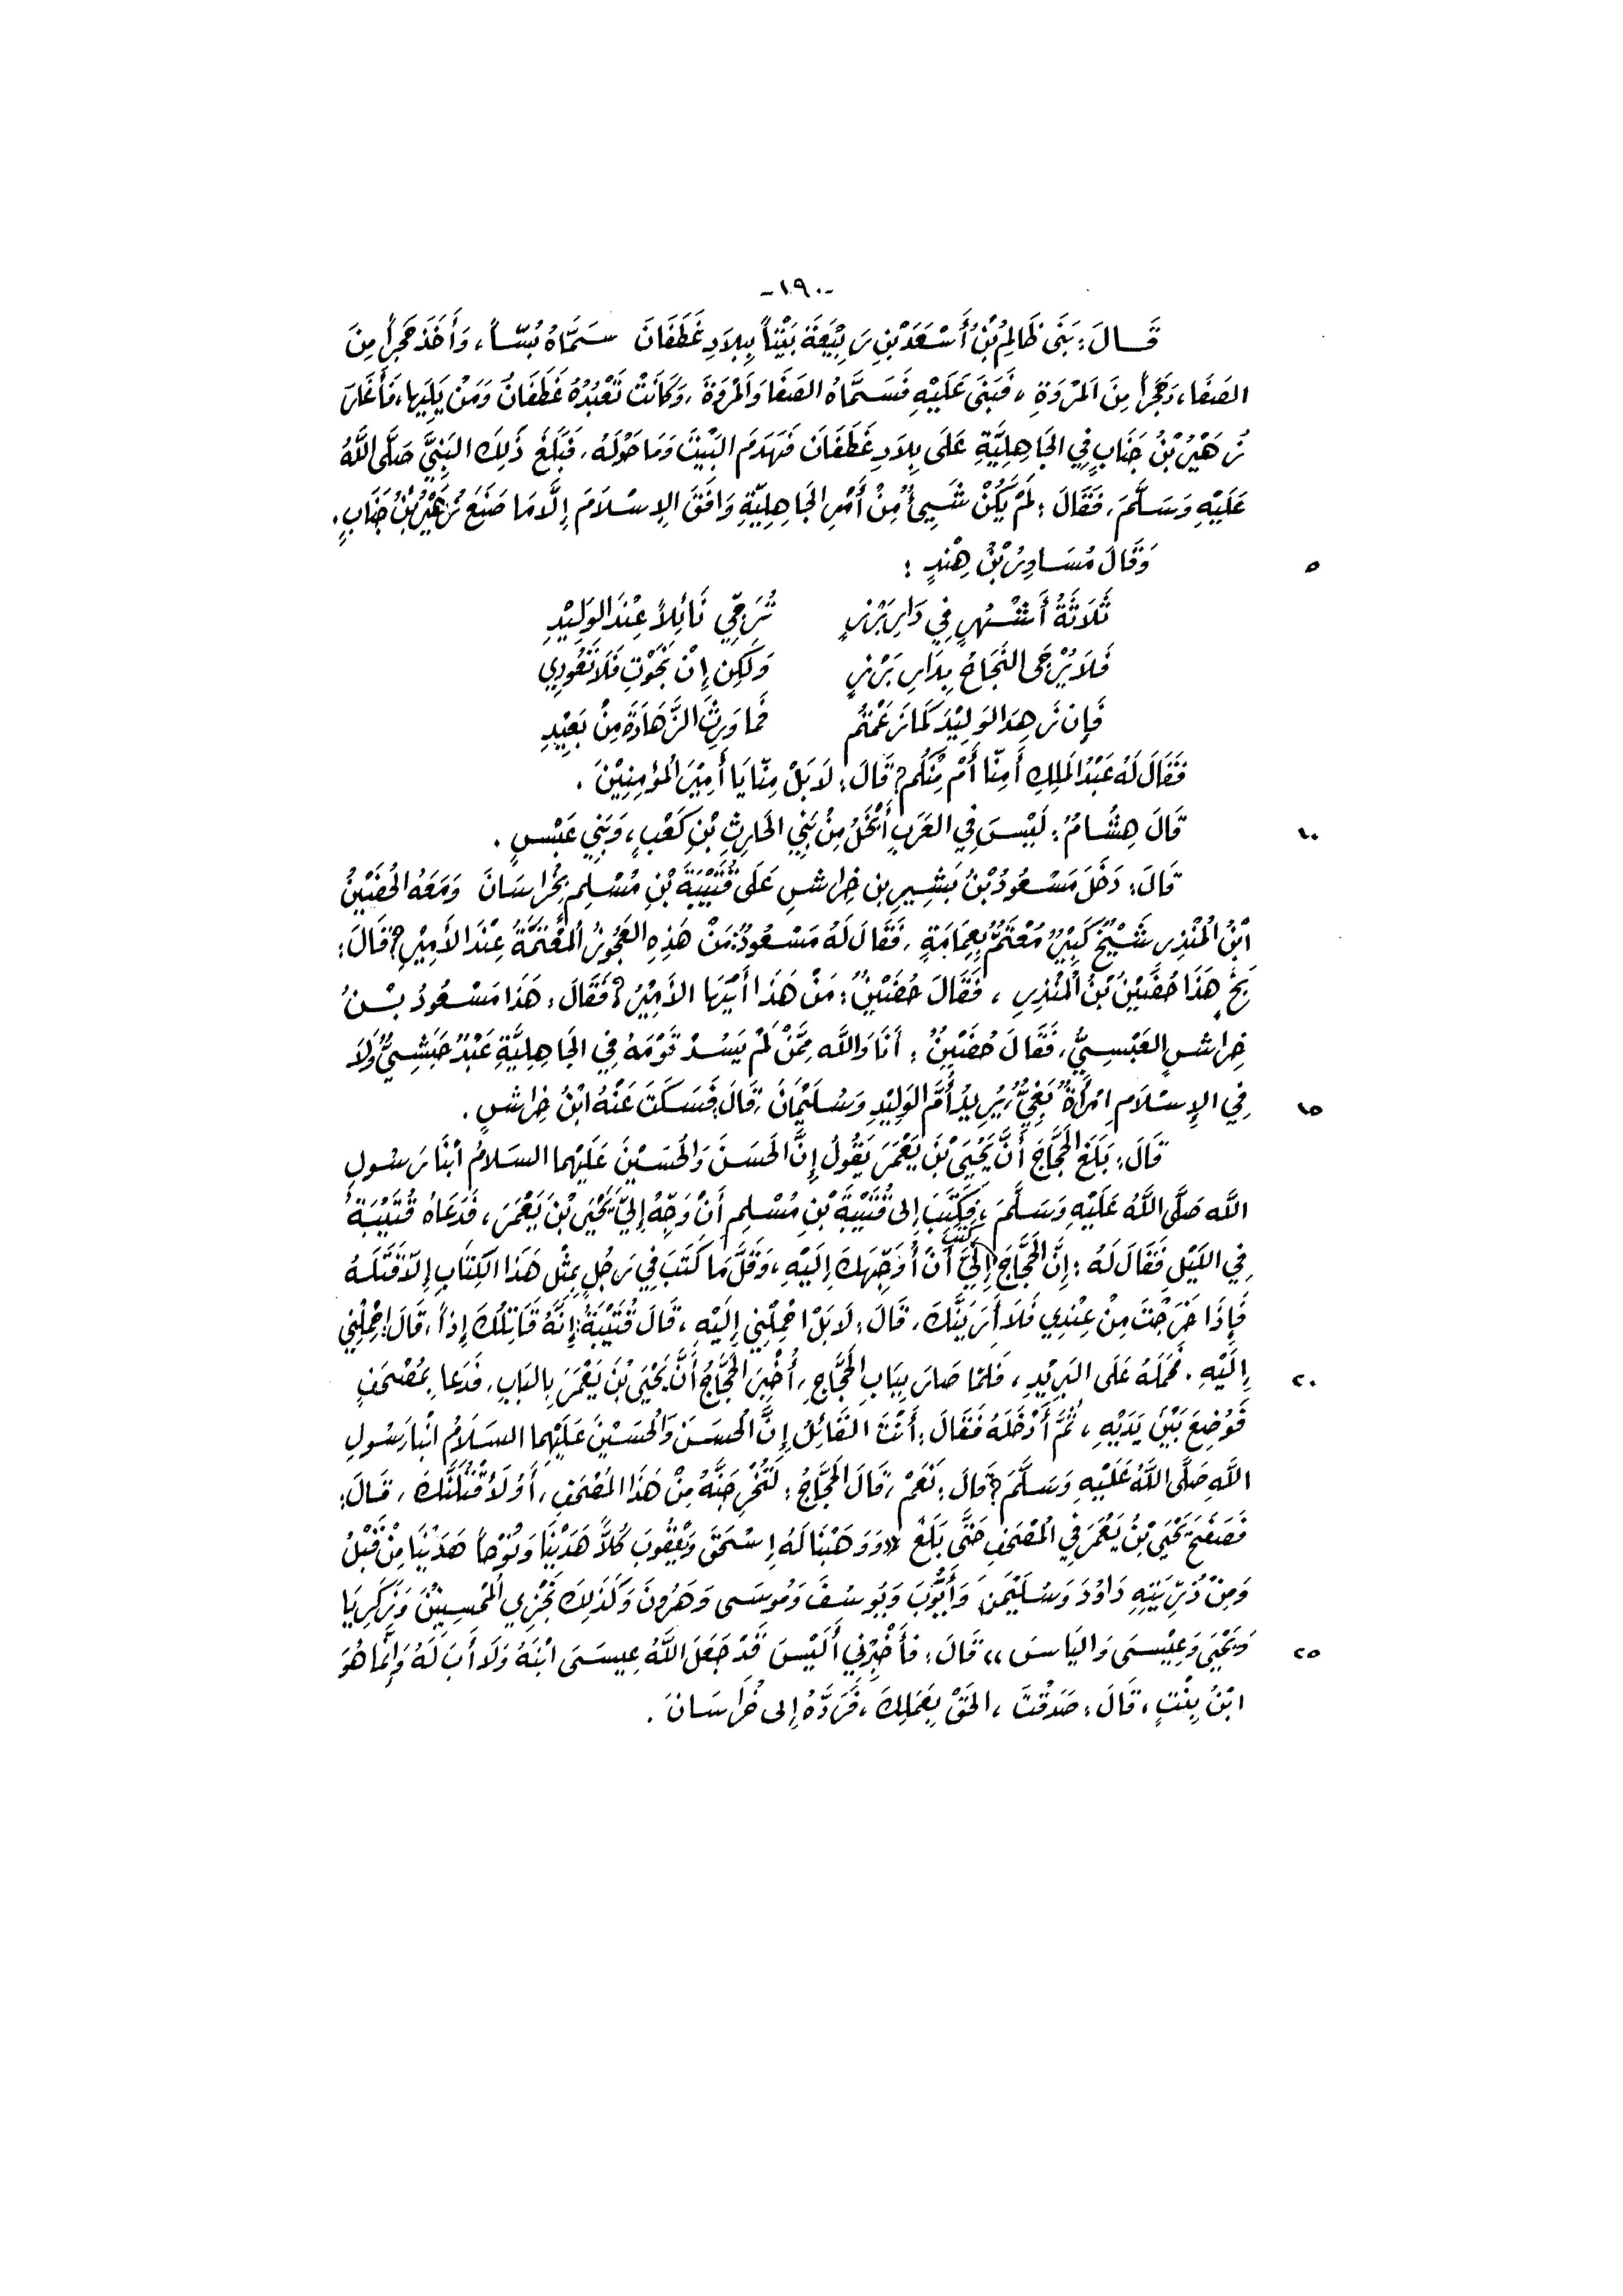 -١٩٠-
قَالَ: بَنَى ظَالِمُ بْنُ أَسْعَدَ بْنِ رَبِيْعَةَ بَيْتاً بِبِلَادِ غَطَفَانَ سَمَّاهُ بُسّاً، وَأَخَذَ حَجَراً مِنَ
الصَفَا، وَحَجَراً مِنَ المَرْوَةِ، فَبَنَى عَلَيْهِ فَسَمَّاهُ الصَفَا وَالمَرْوَةَ، وَكَانَتْ تَعْبُدُهُ غَطَفَانُ وَمَنْ يَلِيَها، فَأَغَارَ
زُهَيْرُ بْنُ جَنَابٍ فِي الجَاهِلِيَّةِ عَلَى بِلاَدِ غَطَفَانَ فَهَدَمَ البَيْتَ وَمَا حَوْلَهُ، فَبَلَغَ ذَلِكَ النَبِيَّ صَلَّى اللَّهُ
عَلَيْهِ وَسَلَّمَ، فَقَالَ: لَمْ يَكُنْ شَيِئٌ مِنْ أَمْرِ الجَاهِلِيَّةِ وَافَقَ الإِسْلَامَ إِلَّا مَا صَنَعَ زُهَيْرُ بْنُ جَنَابٍ.
٥ وَقَالَ مُسَاوِرُ بْنُ هِنْدٍ:
ثَلَاثَةُ أَشْهُرٍ فِي دَارِ بَرْزٍ تُرَجِّي نَائِلاً عِنْدَ الوَلِيْدِ
فَلَا يُرْجَى النَجَاحُ بِدَارِ بَرْزٍ وَلَكِن إِنْ نَجَوْتِ فَلاَ تَعُودِي
فَإِن زَهِدَ الوَلِيْدُ كَمَا زَعَمْتُم فَمَا وَرِثَ الزَّهَادَةَ مِنْ بَعِيْدِ
فَقَالَ لَهُ عَبْدُ المَلِكِ أَمِنّا أَمْ مِنْكُم؟ قَالَ: لَا بَلْ مِنّا يَا أَمِيْرَ المُؤمِنِيْنَ.
١٠ قَالَ هِشَامٌ: لَيْسَ فِي العَرَبِ أَبْخَلُ مِنْ بَنِي الحَارِثِ بْنِ كَعْبٍ، وَبَنِي عَبْسٍ.
قَالَ: دَخَلَ مَسْعُودُ بْنُ بَشِيرِ بنِ خِرَاشٍ عَلَى قُتَيْبَةَ بْنِ مُسْلِمٍ بِخُرَاسَانَ وَمَعَهُ الحُضَيْنُ
ابْنُ المُنْذِرِ شَيْخٌ كَبِيْرٌ مُعْتَمٌّ بِعِمَامَةٍ، فَقَالَ لَهُ مَسْعُودٌ: مَنْ هَذِهِ العَجُوزُ المُعْتَمَّةُ عِنْدَ الأَمِيْرِ؟ قَالَ:
بَخٍ هَذَا حُضَيْنُ بْنُ المُنْذِرِ، فَقَالَ حُضَيْنٌ: مَنْ هَذَا أَيُّهَا الأَمِيْرُ؟ فَقَالَ: هَذَا مَسْعُودُ بْنُ
خِرَاشٍ العَبْسِيُّ، فَقَالَ حُضَيْنٌ: أَنَا وَاللَّه مِمَّنْ لَمْ يَسُدْ قَوْمَهُ فِي الجَاهِلِيَّةِ عَبْدٌ حَبَشِيٌّ وَلَا
١٥ فِي الإِسْلَامِ امْرَأَةٌ بَغِيٌّ، يُرِيدُ أُمَّ الوَلِيْدِ وَسُلَيْمَانَ، قَالَ: فَسَكَتَ عَنْهُ ابْنُ خِرَاشٍ.
قَالَ: بَلَغَ الحَجَّاجَ أَنَّ يَحْيَى بْنَ يَعْمَرَ يَقُولُ إِنَّ الحَسَنَ وَالحُسَيْنَ عَلَيْهِمَا السَلَامُ ابْنَا رَسُولِ
اللَّه صَلَّى اللَّهُ عَلَيْهِ وَسَلَّمَ، فَكَتَبَ إِلى قُتَيْبَةَ بْنِ مُسْلِمٍ أَنْ وَجِّهْ إِليَّ يَحْيَى بْنَ يَعْمَرَ، فَدَعَاهُ قُتَيْبَةُ
فِي اللَيْلِ فَقَالَ لَهُ: إِنَّ الحَجَّاجَ كَتَبَ إِلَيَّ أَنْ أُوَجِّهَكَ إِلَيْهِ، وَقَلَّ مَا كَتَبَ فِي رَجُلٍ بِمِثْلِ هَذَا الكِتَابِ إِلّا قَتَلَهُ
فَإِذَا خَرَجْتَ مِنْ عِنْدِي فَلَا أَرَيَنَّكَ، قَالَ: لَا بَلْ احْمِلْنِي إِلَيْهِ، قَالَ قُتَيْبَةُ: إِنَّهُ قَاتِلُكَ إِذاً، قَالَ: احْمِلْنِي
٢٠ إِلَيْهِ. فَحَمَلَهُ عَلَى البَرِيْدِ، فَلَمَّا صَارَ بِبَابِ الحَجَّاجِ، أُخْبِرَ الحَجَّاجُ أَنَّ يَحْيَى بْنَ يَعْمَرَ بِالبَابِ، فَدَعَا بِمُصْحَفٍ
فَوُضِعَ بَيْنَ يَدَيْهِ، ثُمَّ أَدْخَلَهُ فَقَالَ: أَنْتَ القَائِلُ إِنَّ الحَسَنَ وَالحُسَيْنَ عَلَيْهِمَا السَلَامُ ابْنَا رَسُولِ
اللَّهِ صَلَّى اللَّهُ عَلَيْهِ وَسَلَّمَ؟ قَالَ: نَعَمْ، قَالَ الحَجَّاجُ: لَتُخْرِجَنَّهُ مِنْ هَذَا المُصْحَفِ، أَوْ لَأَقْتُلَنَّكَ، قَالَ:
فَصَفَحَ يَحْيَى بْنُ يَعْمَرَ فِي المُصْحَفِ حَتَّى بَلَغَ «وَوَهَبْنَا لَهُ إِسْحَقَ وَيَعْقُوبَ كُلاًّ هَدَيْنَا وَنُوْحاً هَدَيْنَا مِنْ قَبْلُ
وَمِنْ ذُرِّيَّتِهِ دَاوُدَ وَسُلَيْمَنَ وَأَيُّوبَ وَيُوسُفَ وَمُوسَى وَهَرُونَ وَكَذَلِكَ نَجْزِي المُحْسِنِيْنَ وَزَكَرِيَا
٢٥ وَيَحْيَى وَعِيْسَى وَاليَاسَ» قَالَ: فَأَخْبِرْنِي أَلَيْسَ قَدْ جَعَلَ اللَّهُ عِيسَى ابْنَهُ وَلَا أَبَ لَهُ وَإِنَّمَا هُوَ
ابْنُ بِنْتٍ، قَالَ: صَدَقْتَ، الحَقْ بِعَمَلِكَ، فَرَدَّهُ إِلى خُرَاسَانَ.